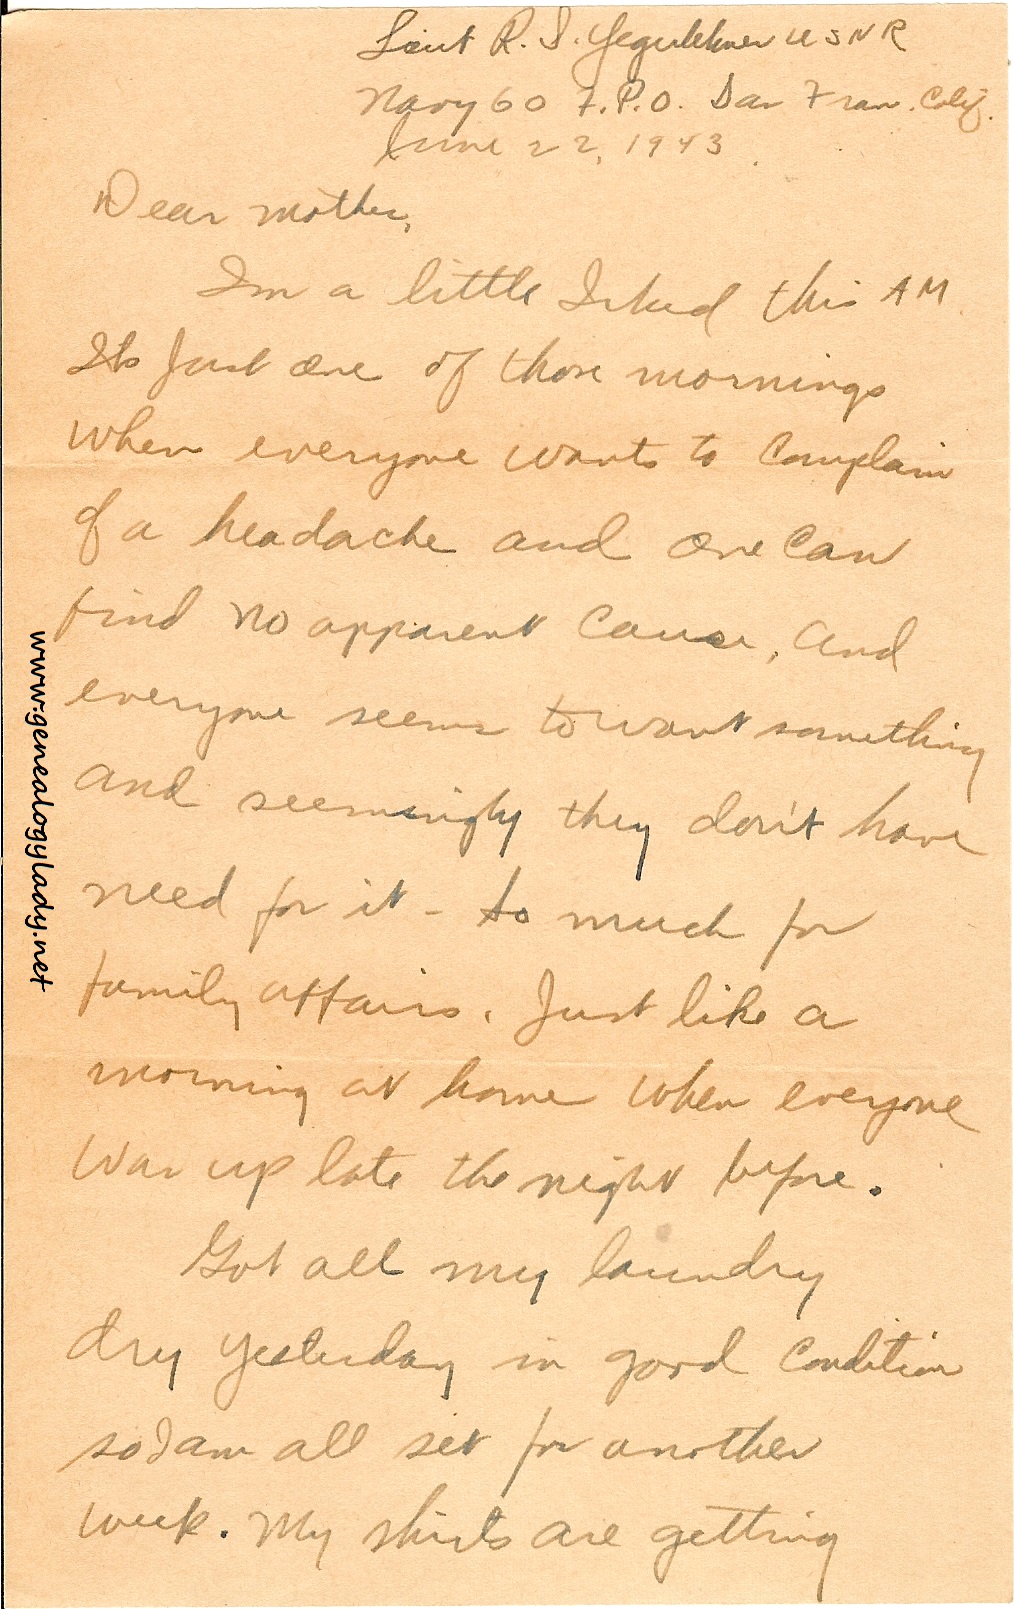 Lieut R. I. Yegerlehner USNR
Navy 60 F.P.O. San Fran. Calif.
June 22, 1943.
Dear Mother,
Im a little Irked this AM
Its just one of those mornings
when everyone wants to complain
of a headache and one can
find no apparent cause, and
everyone seems to want something
and seemingly they don't have
need for it - so much for
family affairs. Just like a
morning at home when everyone
was up late the night before.
Got all my laundry
dry yesterday in good condition
so I am all set for another
week. My shirts are getting
www.genealogylady.net